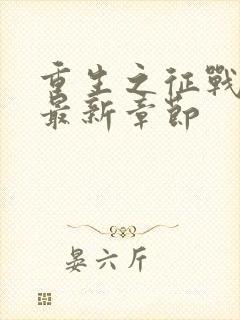 重生之征戰
最新章節
晏六斤